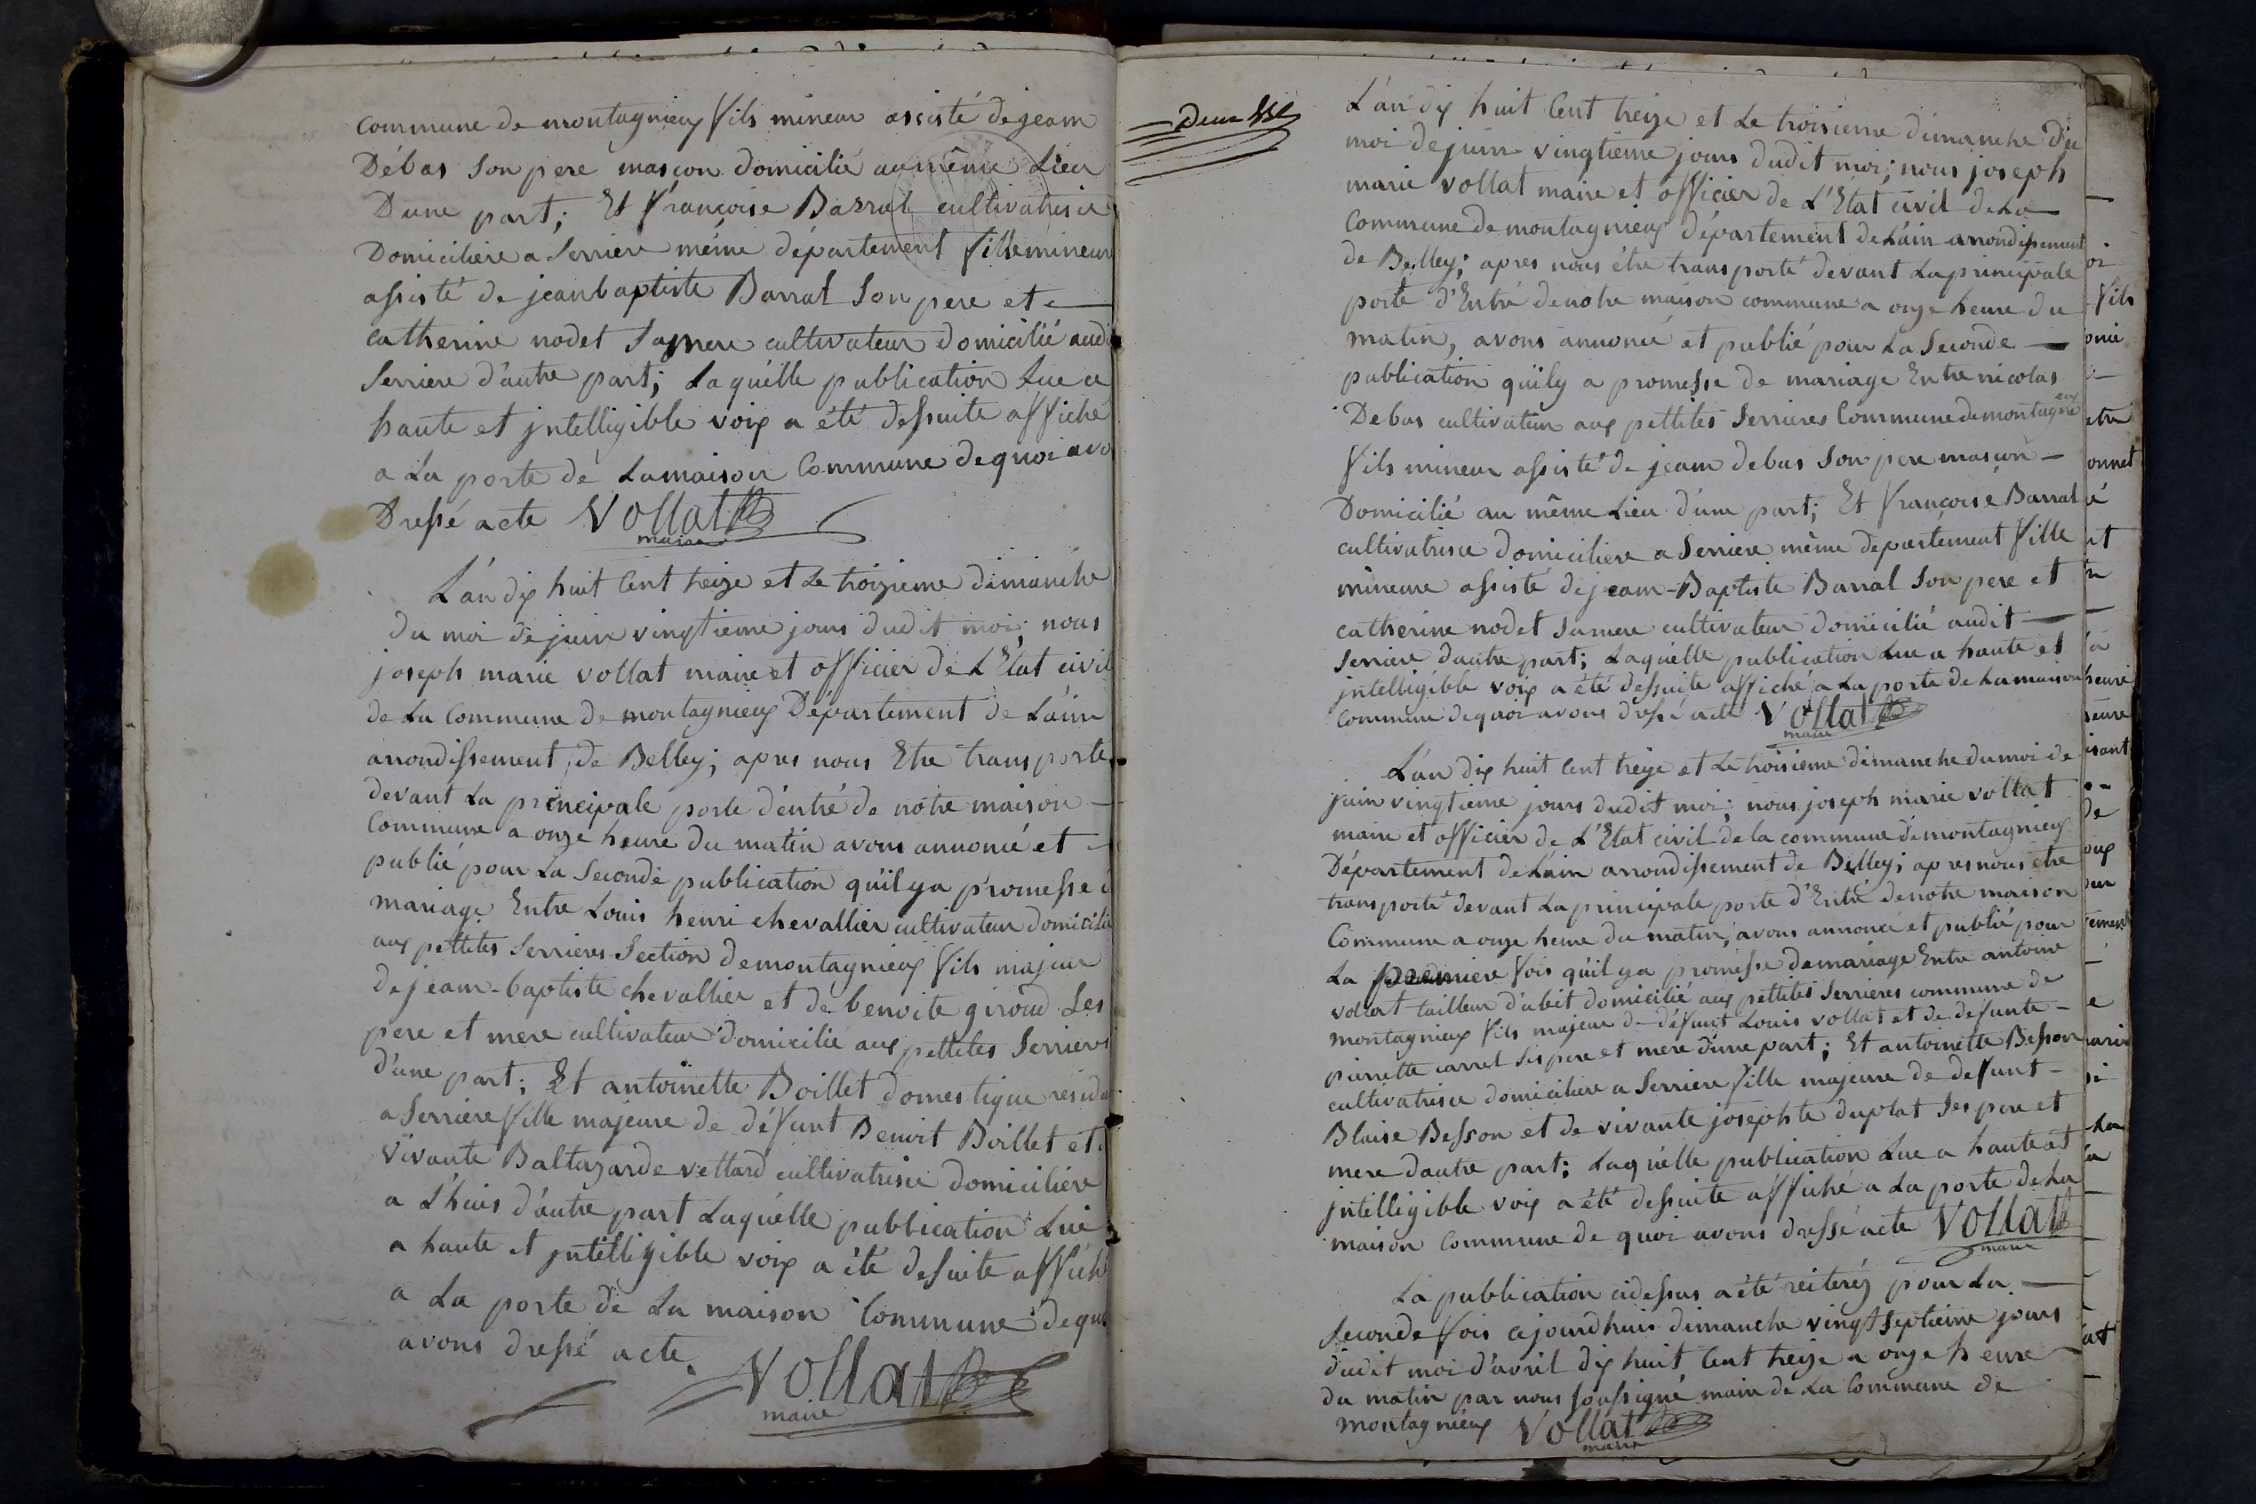 commune de montagnieux fils mineur assisté de jeam
Débas son pere masçon domicilié au même Lieu
D'une part; Et françoise Barral cultivatrisce
Domiciliere a Serriere même département fille mineur
assisté de jeanbaptiste Barral son pere et
catherine nodet Sa mere cultivateur domicilié audi
Serriere d'autre part; Laquélle publication Lue a
haute et jntelligible voix a été dessuite affiché
a La porte de Lamaison Commune dequoi avo
Dressé acte Vollat
maire
L'an dix huit Cent treize et Le troizieme dimanche
du moi de juin vingtieme jours dudit moi; nous
joseph marie vollat maire et officier de L'Etat civil
de La commune de montagnieux Département de L'ain
arrondissement de Belley; apres nous Etre transporté
devant La principale porte d'entré de nôtre maison
Commune a onze heure du matin avons annoncé et
publié pour La Seconde publication qu'il ya promesse d
mariage Entre Louis henri chevallier cultivateur domicilié
aux pettites Serrieres Section demontagnieux fils majeur
de jeam-baptiste chevallier et de benoite giroud Les
pere et mere cultivateur domicilié aux pettites Serrieres
d'une part; Et antoinette Boillet domestique resida
a Serriere fille majeure de défunt Benoit Boillet et
vivante Baltazarde vettard cultivatrisce domiciliere
a L'huis d'autre part Laquélle publication Lue
a haute et jntélligible voix a été desuite affiché
a La porte de La maison Commune de quoi
avons dressé acte.
Vollat
maire
Deux
L'an dix huit Cent treize et Le troisieme dimanche du
moi de juin vingtieme jours dudit moi; nous joseph
marie vollat maire et officier de L'Etat civil de La
Commune de montagnieux département de L'ain arrondissement
de Belley; apres nous être transporté devant La principale
porte d'Entré de notre maison commune a onze heure du
matin, avons annoncé et publié pour La Seconde
publication qu'ily a promesse de mariage Entre nicolas
Debas cultivateur aux pettites Serrieres Commune de montagnieux
fils mineur assisté de jeam debas Son pere masçon
Domicilié au même Lieu d'une part; Et françoise Barral
cultivatrisce domiciliere a Serriere même departement fille
mineure assisté de jeam-Baptiste Barral Son pere et
catherine nodet Sa mere cultivateur domicilié audit
Serriere d'autre part; Laquélle publication Lue a haute et
jntelligible voix a été dessuite affiché a La porte de Lamaison
commune dequoi avons dressé acte Vollat
maire
L'an dix huit Cent treize et Le troisieme dimanche du moi de
juin vingtieme jours dudit moi; nous joseph marie vollat
maire et officier de L'Etat civil de la commune de montagnieux
Département de L'ain arrondissement de Belley; apres nous etre
transporté devant La principale porte d'Entré de notre maison
Commune a onze heure du matin, avons annoncé et publié pour
La premiere fois qu'il ya promesse de mariage Entre antoine
vollat tailleur d'abit domicilié aux pettites Serrieres commune de
montagnieux fils majeur de défunt Louis vollat et de defunte
pierrette carrel Ses pere et mere d'une part; Et antoinette Besson
cultivatrisce domiciliere a Serriere fille majeure de defunt
Blaise Besson et de vivante josephte duplat Ses pere et
mere d'autre part; Laquélle publication Lue a haute et
jntelligible voix a été dessuite affiché a La porte de La
maison Commune de quoi avons dressé acte Vollat
maire
La publication cidessus a été reiteréz pour La
Seconde fois cejourdhuis dimanche vingt septieme jours
dudit moi d'avril dix huit Cent treize a onze heure
du matin par nous soussigné maire de La Commune de
montagnieux Vollat
maire